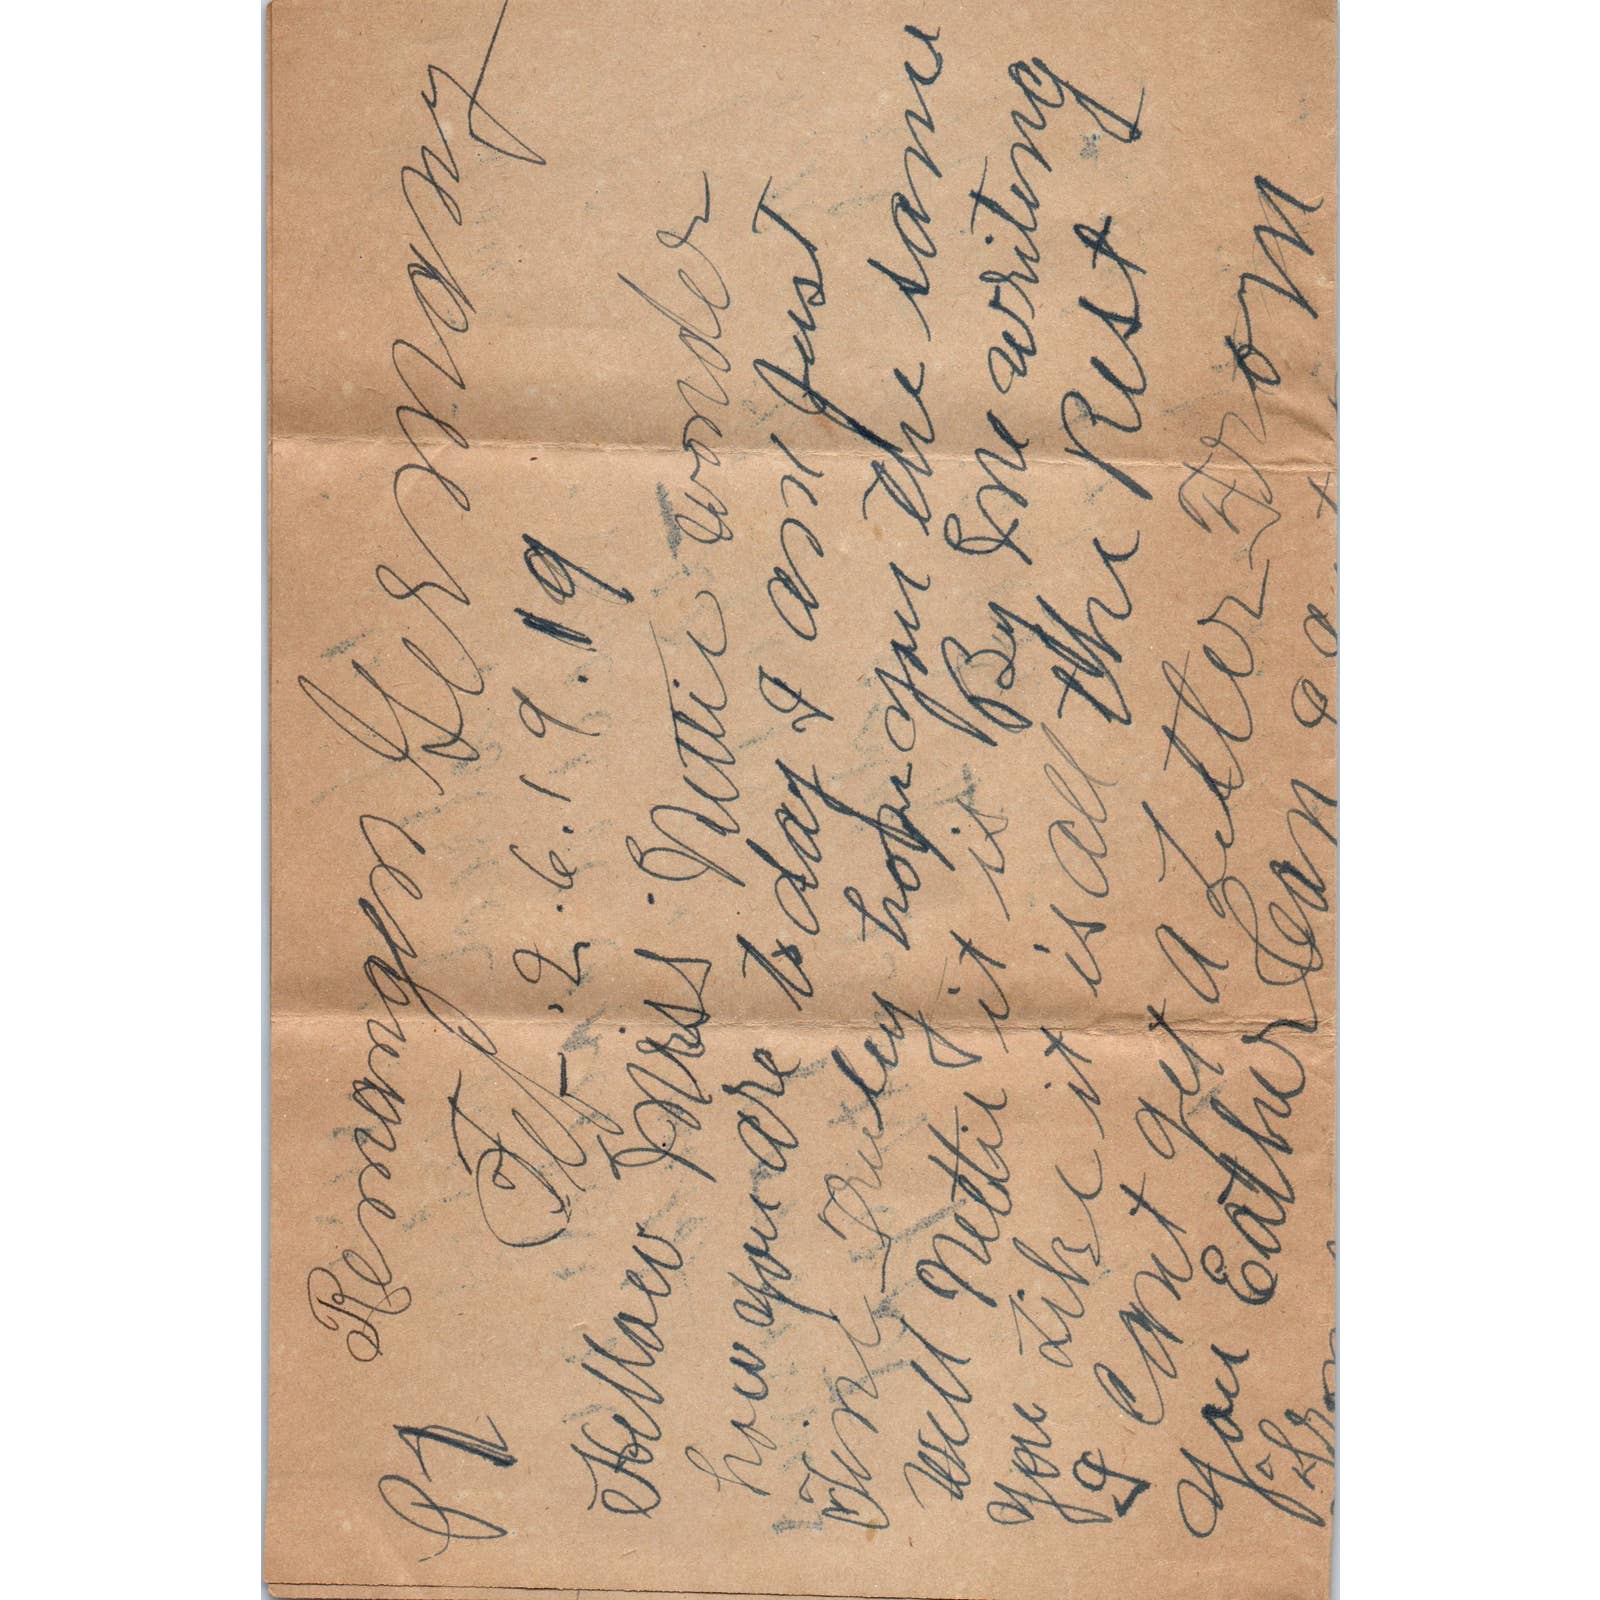 P1
Remagen Germany
Feb. 26. 19. 19
Hellaw Miss Nettie wonder
how you are to day I am Just
Fine Truley hope you the same
Well Nettie it is By me writing
you Like it is all the Rest
I Cant get a Letter From
you Eather Can